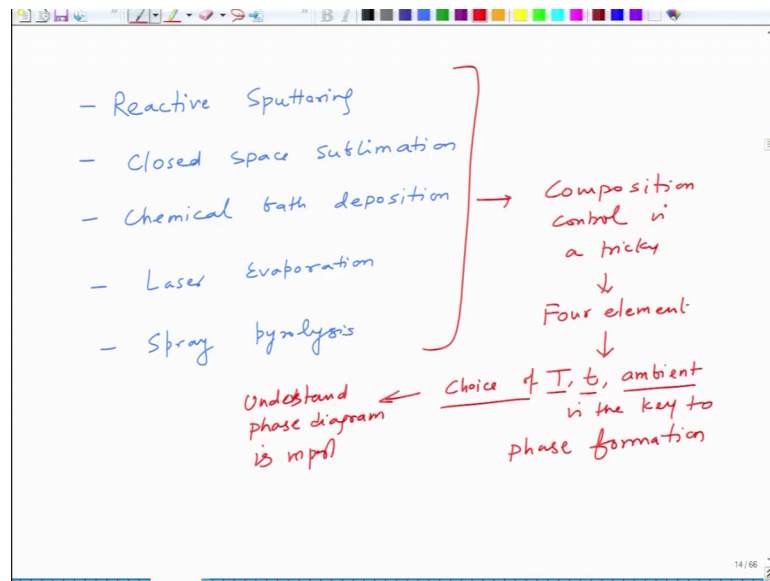 – Reactive Sputtoring
– Closed space sublimation
– Chemical bath deposition
– Laser Evaporation
– Spray pyrolysis
→ Composition
control is
a tricky
↓
Four element
↓
Choice of T, t, ambient
is the key to
phase formation
← Understand
phase diagram
is impot
14 / 66